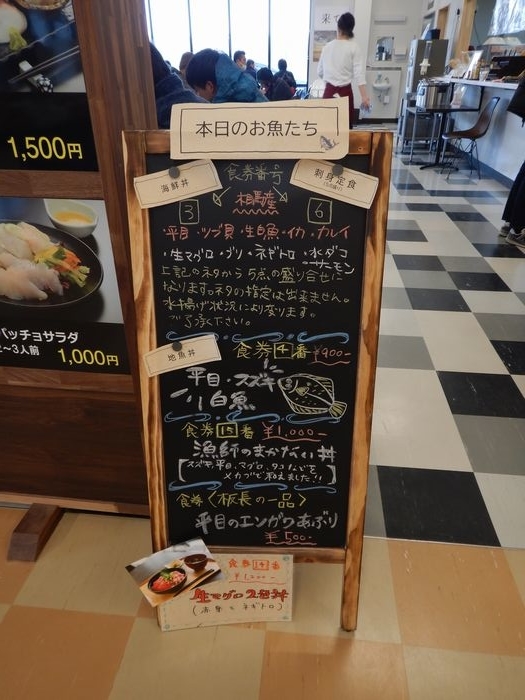 1,500円
ッチョサラダ
2〜3人前
1,000円
来て
本日のお魚たち
海鮮丼
食券番号
刺身定食
3
相馬産
6
・平目・ツブ貝・生白魚・イカ・カレイ
・生マグロ・ブリ・ネギトロ・水ダコ
・サーモン
上記のネタから5点の盛り合せに
なります。ネタの指定は出来ません。
水揚げ状況により変ります。
ご了承ください。
地魚丼
食券4番 ¥900-
平目・スズキ
小白魚
食券15番 ¥1,000-
漁師のまかない丼
スズキ、平目、マグロ、タコなどを
メカブで和えました!!
食券〈板長の一品〉
平目のエンガワあぶり
¥500-
食券14番
¥1,200-
生マグロ2色丼
(赤身とネギトロ)